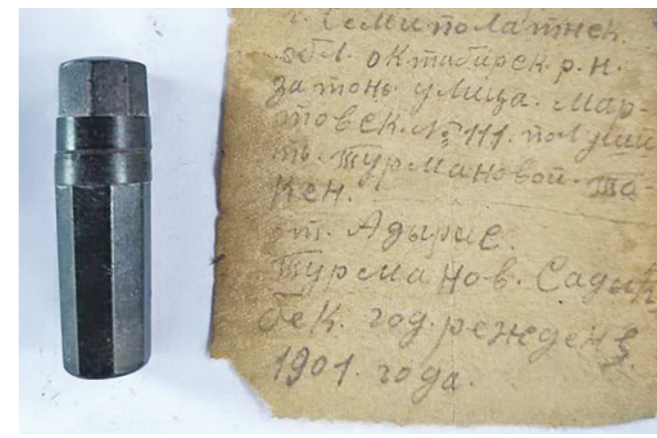 г. Семиполатнск.
обл. октабирск. р.н.
затонь улица. Мар-
товск. № 111. получи
ть. Турмановой. Ша-
кен.
от. Адырис.
Турсманов. Садык
бек. год. режденя
1901. года.